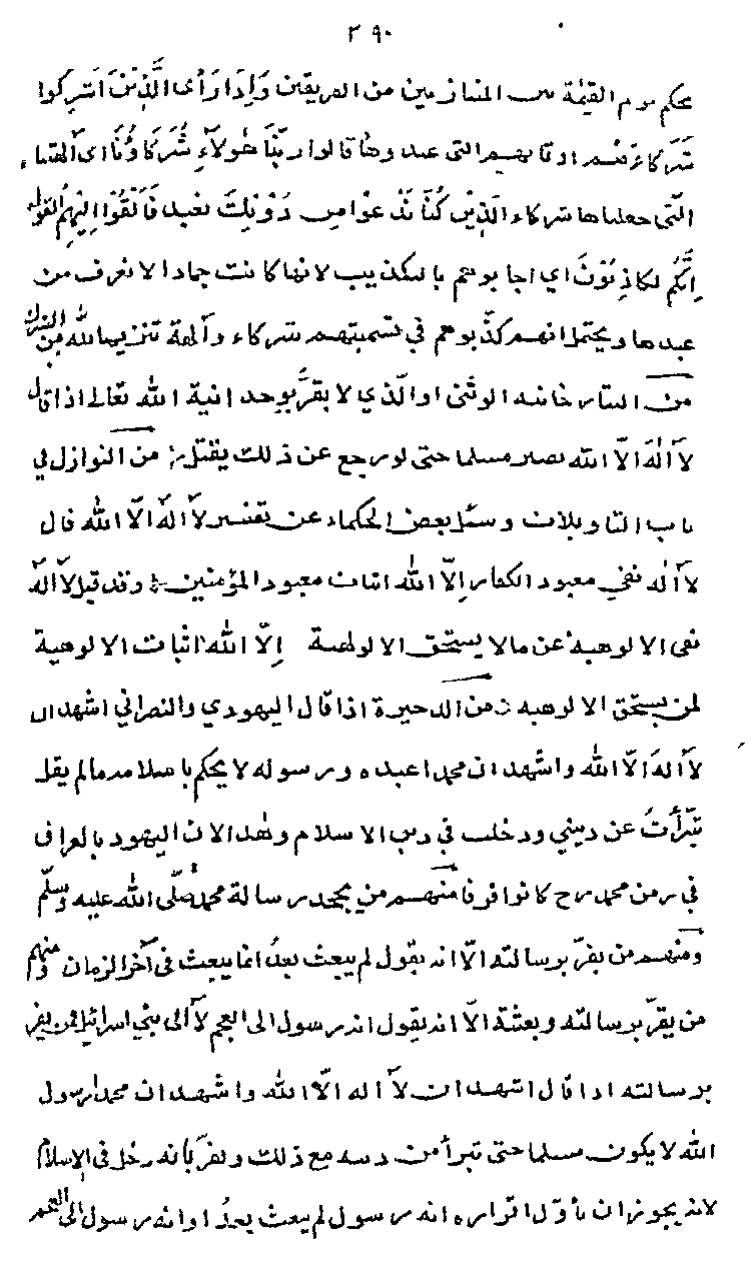 ٣٩٠
يحكم يوم القيمة بين المتنازعين من الفريقين وَاِذَا رَأى الَّذِينَ اَشركوا
شركاءهم اوثانهم التى عبدوها قالوا ربّنا هٰولآءِ شُرَكَاؤُنَا اى آلهتنا
التّى جعلناها شركاء الَّذِينَ كُنَّا نَدْعوْا من دُوْنِكَ نعبد فَاَلْقَوْا اِلَيْهِمُ القول
اِنَّكُم لكاذِبُوْنَ اي اجابوهم بالتكذيب لانها كانت جمادا لا تعرف من
عبدها ويحتمل انهم كذّبوهم في تسميتهم شركاء وآلهة تنزيها لله من الشرك
من التتارخانيه الوثنى او الّذي لا يقرّ بوحدانية الله تعالى اذا قال
لآ اله الّا الله يصير مسلما حتى لو رجع عن ذلك يقتل من النوازل في
باب التاويلات وسئل بعض الحكماء عن تفسير لآ اله الّا الله قال
لآ اله نفي معبود الكفار اِلّا الله اثبات معبود المؤمنين وقد قيل لآ اله
نفى الالوهية عن ما لا يستحق الالوهية اِلّا الله اثبات الالوهية
لمن يستحق الالوهيه من الدخيرة اذا قال اليهودي والنصراني اشهد ان
لآ اله الّا الله واشهد ان محمدا عبده ورسوله لا يحكم باسلامه ما لم يقل
تبّرأت عن ديني ودخلت في دين الاسلام وهٰذا لان اليهود بالعراق
في زمن محمد رح كانوا فرقا منهم من يجحد رسالة محمد صلّى الله عليه وسلّم
ومنهم من يقرّ برسالته الّا انه يقول لم يبعث بعدُ انما يبعث فى آخر الزمان ومنهم
من يقرّ برسالته وبعثه الّا انه يقول انه رسول الى العجم لآ الى بني اسرائيل فمن يقر
برسالته اذا قال اشهد ان لآ اله الّا الله واشهد ان محمدا رسول
الله لا يكون مسلما حتى تبرأ من دينه مع ذلك ويقرّ بأنه دخل في الاسلام
لانه يجوز ان يأوّل اقراره انه رسول لم يبعث بعدُ او انه رسول الى العجم